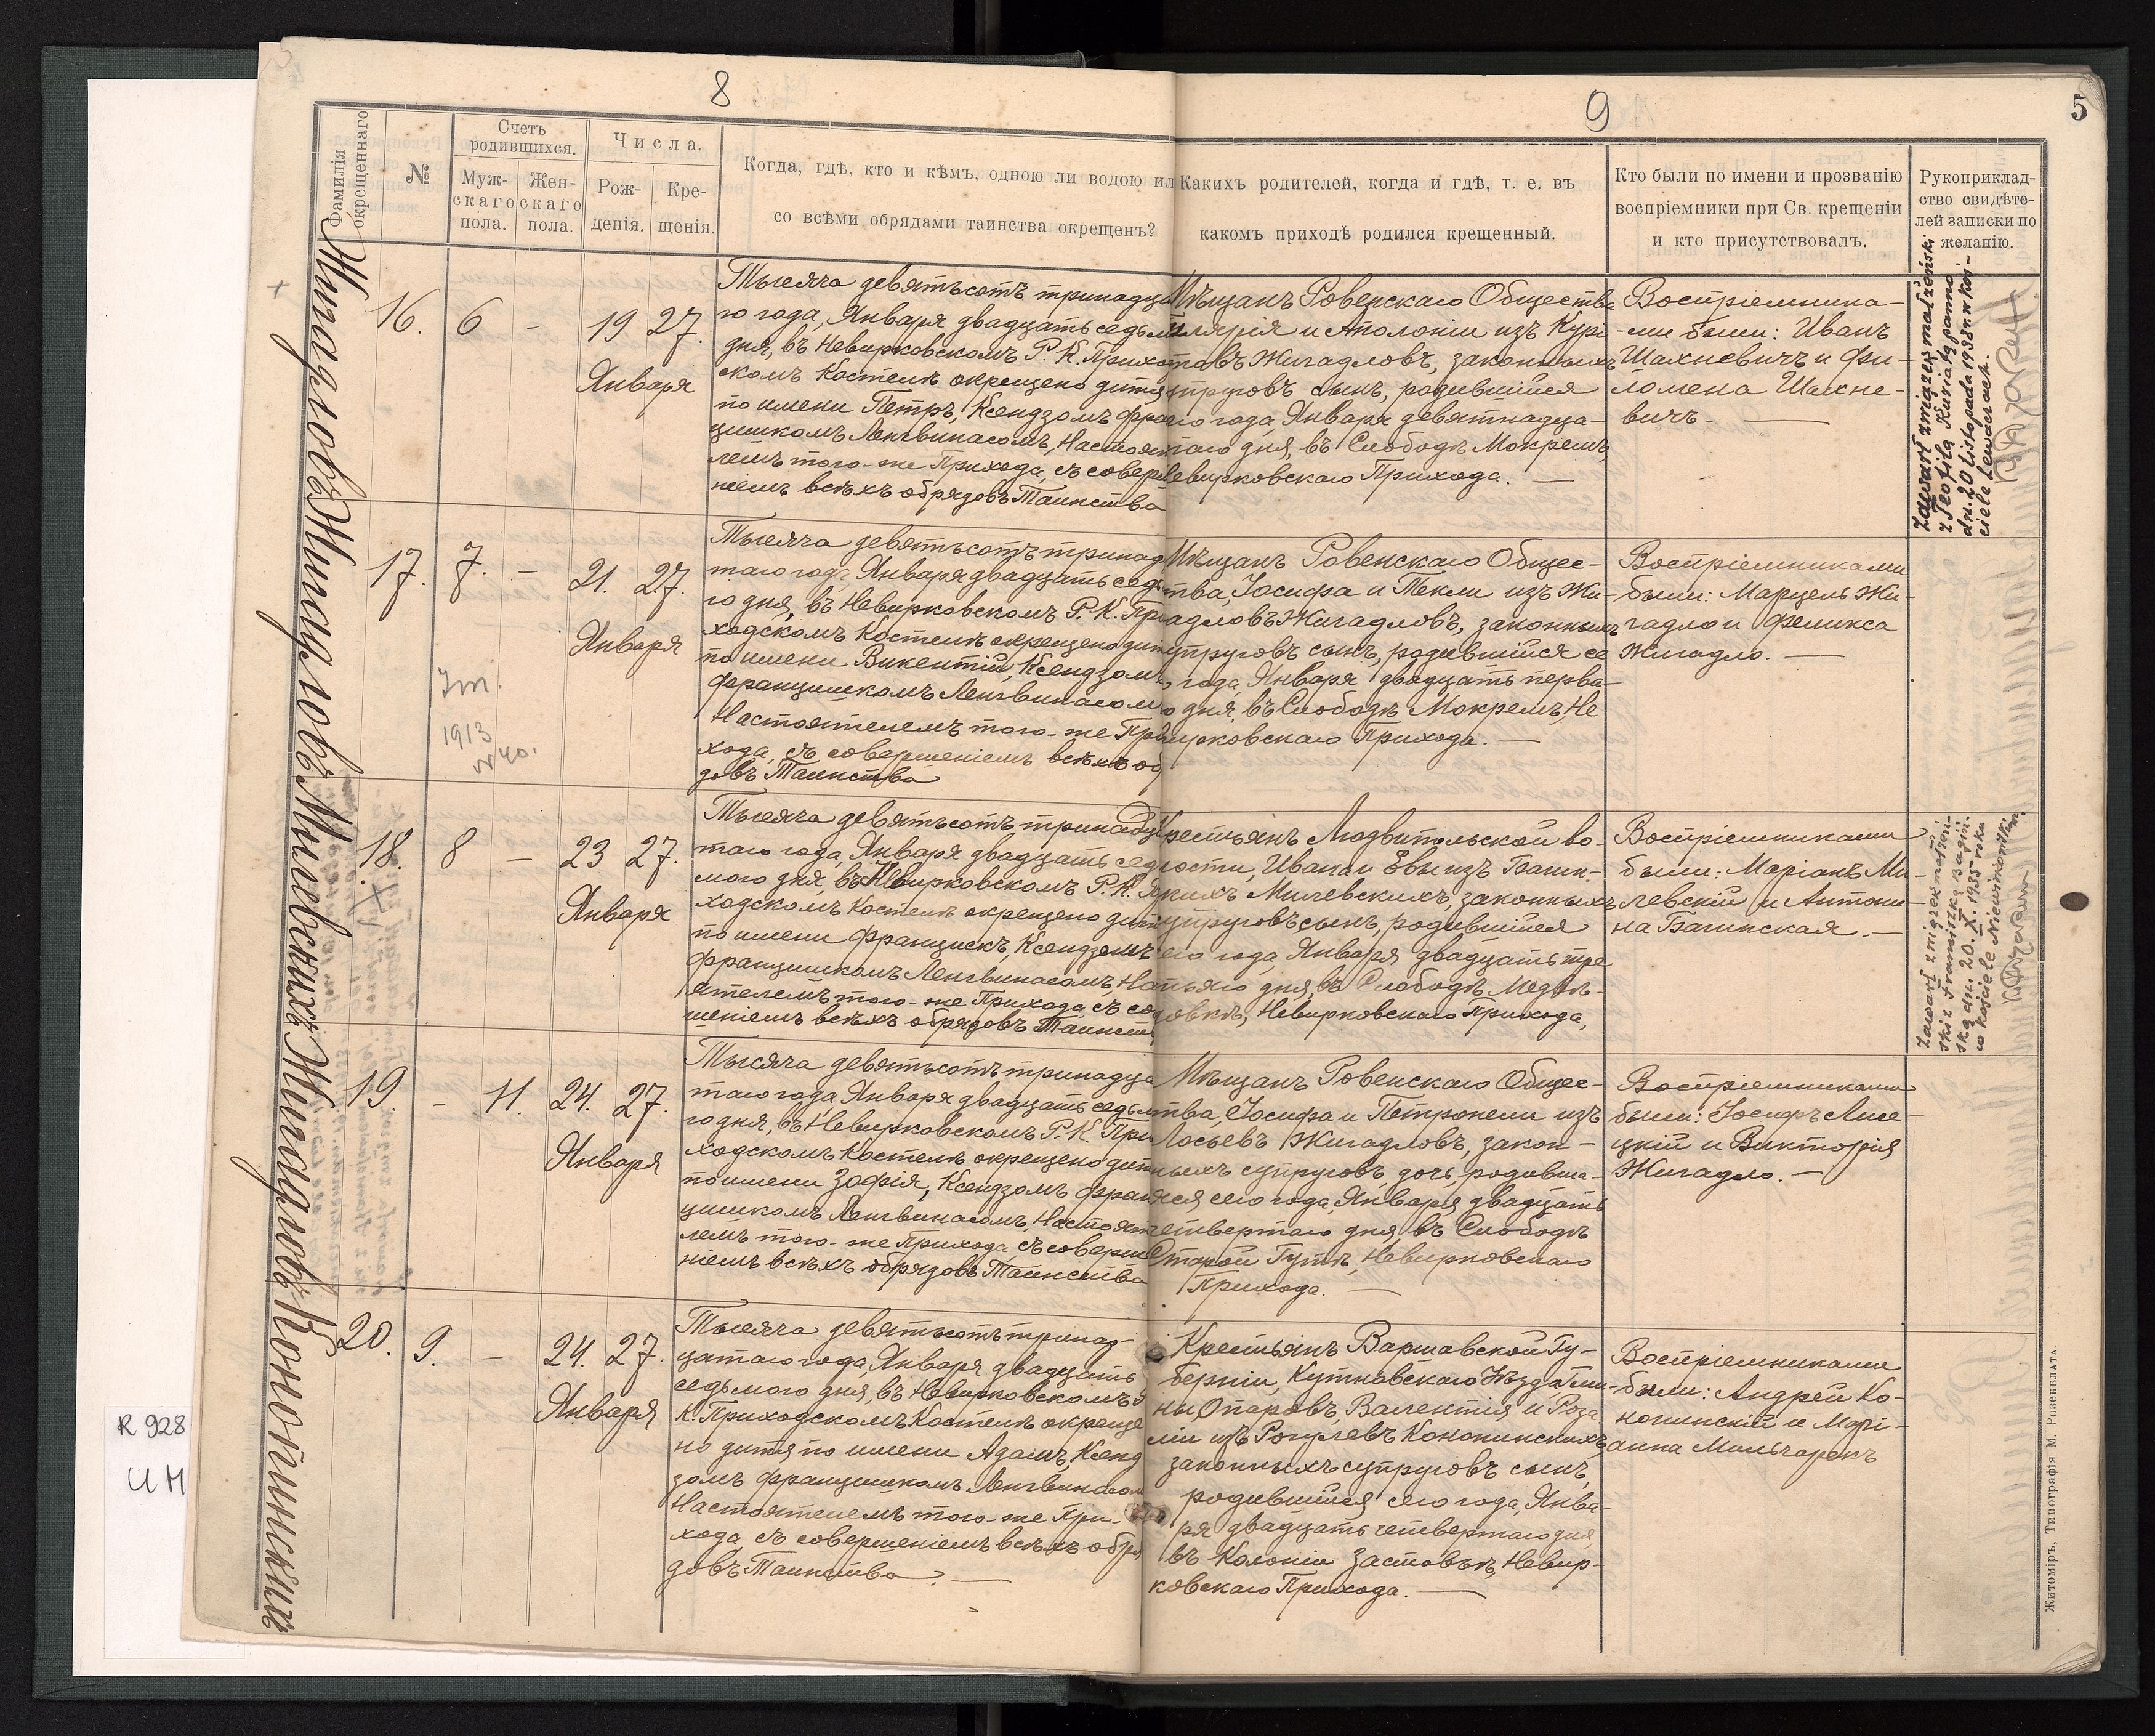 8
9
5
Фамилія
окрещеннаго
№
Счетъ
родившихся.
Муж-
скаго
пола.
Жен-
скаго
пола.
Числа.
Рож-
денія.
Кре-
щенія.
Когда, гдѣ, кто и кѣмъ, одною ли водою ил
со всѣми обрядами таинства окрещенъ?
Какихъ родителей, когда и гдѣ, т. е. въ
какомъ приходѣ родился крещенный.
Кто были по имени и прозванію
воспріемники при Св. крещеніи
и кто присутствовалъ.
Рукоприклад-
ство свидѣте-
лей записки по
желанію.
Жигадловъ
16. 6 - 19 27.
Января
Тысяча девятьсотъ тринадца
го года, Января двадцать седьм
дня, въ Невирковскомъ Р. К. Прихо
скомъ Костелѣ окрещено дитя
по имени Петръ, Ксендзомъ Фран
цишкомъ Ленгвинасомъ, Настоят
лемъ того-же Прихода, съ соверш
ніемъ всѣхъ обрядовъ Таинства
Мѣщанъ Ровенскаго Общества
Иллярія и Аполоніи изъ Кури-
товъ Жигадловъ, законныхъ
супруговъ сынъ, родившійся
сего года, Января девятнадца-
таго дня, въ Слободѣ Мокремъ,
Невирковскаго Прихода. —
Воспріемника-
ми были: Иванъ
Шахневичъ и Фи-
ломена Шахне-
вичъ. —
Zawarł związek małżeński
z Teofilą Kuriatą panną
dn. 20 listopada 1938 r. w koś-
ciele Lewaczach.
Жигадловъ
17. 7. - 21. 27.
Января
Im.
1913
N 40.
Тысяча девятьсотъ тринад
таго года, Января двадцать седь
го дня, въ Невирковскомъ Р. К. При
ходскомъ Костелѣ окрещено дит
по имени Викентій, Ксендзомъ
Францишкомъ Ленгвинасом
Настоятелемъ того-же При
хода, съ совершеніемъ всѣхъ об
довъ Таинства
Мѣщанъ Ровенскаго Общес-
тва, Іосифа и Текли изъ Жи-
гадловъ Жигадловъ, законныхъ
супруговъ сынъ, родившійся се
го года, Января двадцать перва-
го дня, въ Слободѣ Мокремъ, Не
вирковскаго Прихода. —
Воспріемниками
были: Марцель Жи-
гадло и Феликса
Жигадло. —
Милевскихъ
18. 8 - 23 27.
X
Января
Тысяча девятьсотъ тринадца
таго года, Января двадцать сед
мого дня, въ Невирковскомъ Р. К. При
ходскомъ Костелѣ окрещено дитя
по имени Францискъ, Ксендзомъ
Францишкомъ Ленгвинасомъ, На
ятелемъ того-же Прихода, съ со
шеніемъ всѣхъ обрядовъ Таинст
Крестьянъ Людвипольской во-
лости, Ивана и Евы изъ Багин-
скихъ Милевскихъ, законныхъ
супруговъ сынъ, родившійся
сего года, Января двадцать тре
тьяго дня, въ Слободѣ Медвѣ-
довкѣ, Невирковскаго Прихода,
Воспріемниками
были: Маріанъ Ми-
левскій и Антони-
на Багинская. —
Zawarł związek małżeń-
ski z Franciszką Bagiń-
ską dn. 20. X. 1935 roku
w kościele Niewirkowskim.
Жигадловъ
19. - 11. 24. 27.
Января
Тысяча девятьсотъ тринадца
таго года, Января двадцать седьм
го дня, въ Невирковскомъ Р. К. При
ходскомъ Костелѣ окрещено дит
по имени Зофія, Ксендзомъ Фран
цишкомъ Ленгвинасомъ, Настоят
лемъ того-же Прихода, съ соверше
ніемъ всѣхъ обрядовъ Таинства
Мѣщанъ Ровенскаго Общес-
тва, Іосифа и Петронели изъ
Лосьевъ Жигадловъ, закон-
ныхъ супруговъ дочь, родивша-
яся сего года, Января, двадцать
четвертаго дня, въ Слободѣ
Старой Гутѣ, Невирковскаго
Прихода. —
Воспріемниками
были: Іосифъ Лисе-
цкій и Викторія
Жигадло. —
Конопинскихъ
20. 9. - 24. 27.
Января
Тысяча девятьсотъ тринад-
цатаго года, Января двадцать
седьмого дня, въ Невирковскомъ Р
К. Приходскомъ Костелѣ окреще
но дитя по имени Адамъ, Ксенд
зомъ Францишкомъ Ленгвинасом
Настоятелемъ того-же При-
хода, съ совершеніемъ всѣхъ обря
довъ Таинства. —
Крестьянъ Варшавской Гу-
берніи, Кутновскаго Уѣзда Гми-
ны, Опаровъ, Валентія и Роза
ліи изъ Рогулевъ Конопинскихъ,
законныхъ супруговъ сынъ,
родившійся сего года, Янва-
ря двадцать четвертаго дня
въ Колоніи Заставѣ, Невир-
ковскаго Прихода. —
Воспріемниками
были: Андрей Ко-
нопинскій и Марі-
анна Мильчарекъ
R 928
Житоміръ. Типографія М. Розенблата.